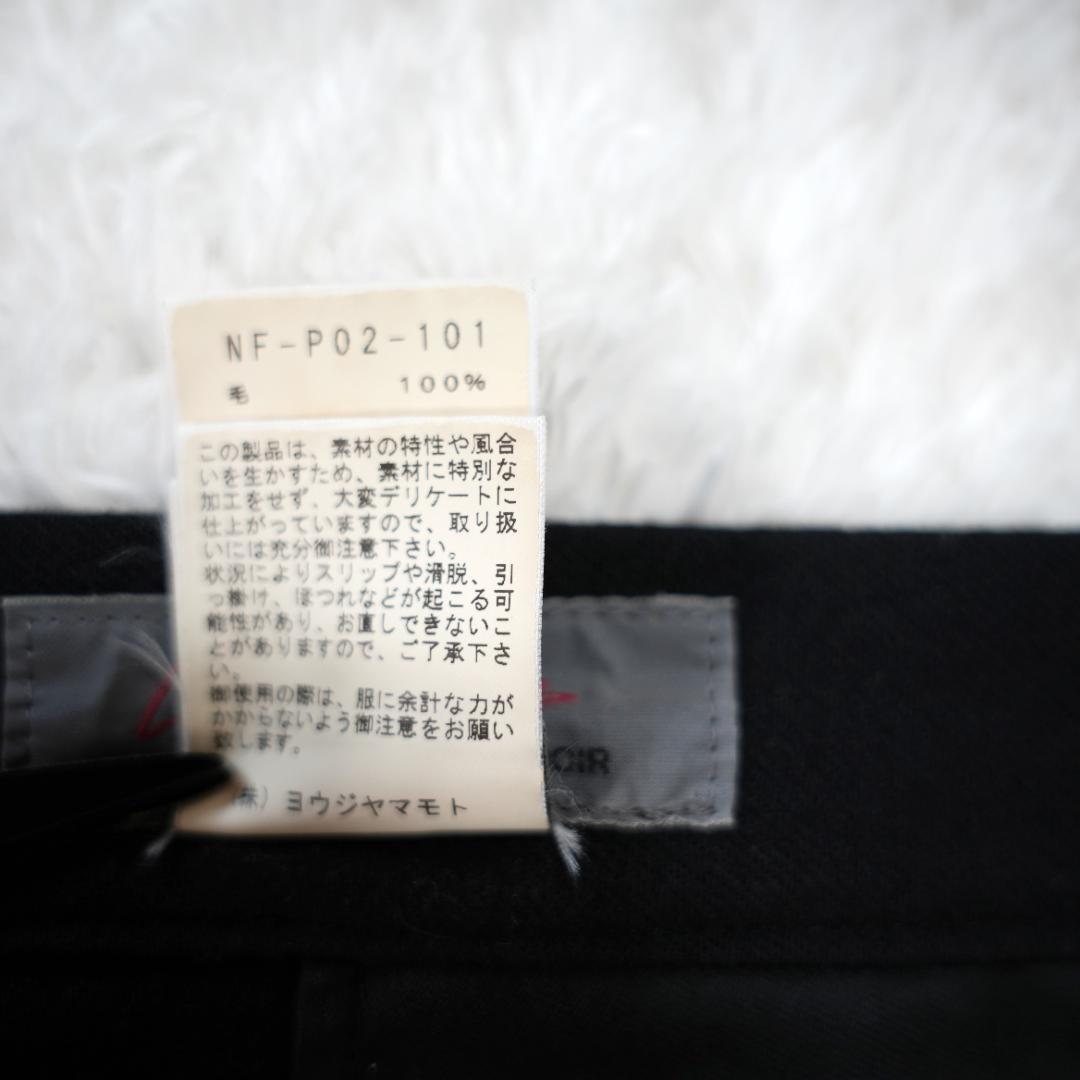 NF-P02-101
毛 100%
この製品は、素材の特性や風合
いを生かすため、素材に特別な
加工をせず、大変デリケートに
仕上がっていますので、取り扱
いには充分御注意下さい。
状況によりスリップや滑脱、引
っ掛け、ほつれなどが起こる可
能性があり、お直しできないこ
とがありますので、ご了承下さ
い。
御使用の際は、服に余計な力が
かからないよう御注意をお願い
致します。
(株) ヨウジヤマモト
OIR